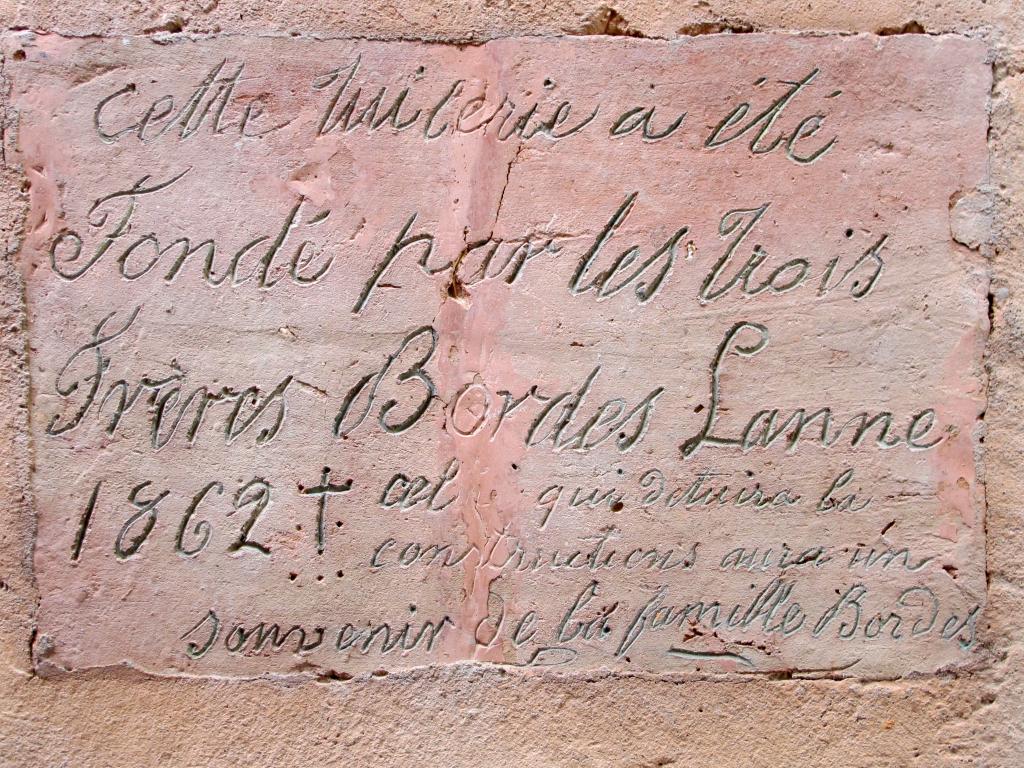 Cette tuilerie a été
Fondé par les trois
Frères Bordes Lanne
1862 † celui qui detuira la
constructions aura un
souvenir de la famille Bordes